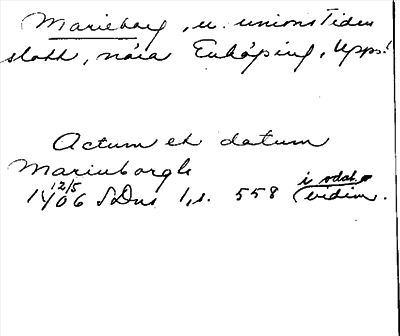 Marieborg, u. unionstiden
slott, nära Enköping, Upps.
Actum et datum
Marieborgh
12/5
1406 SDns 1, s. 558 (vidim.
i odat.